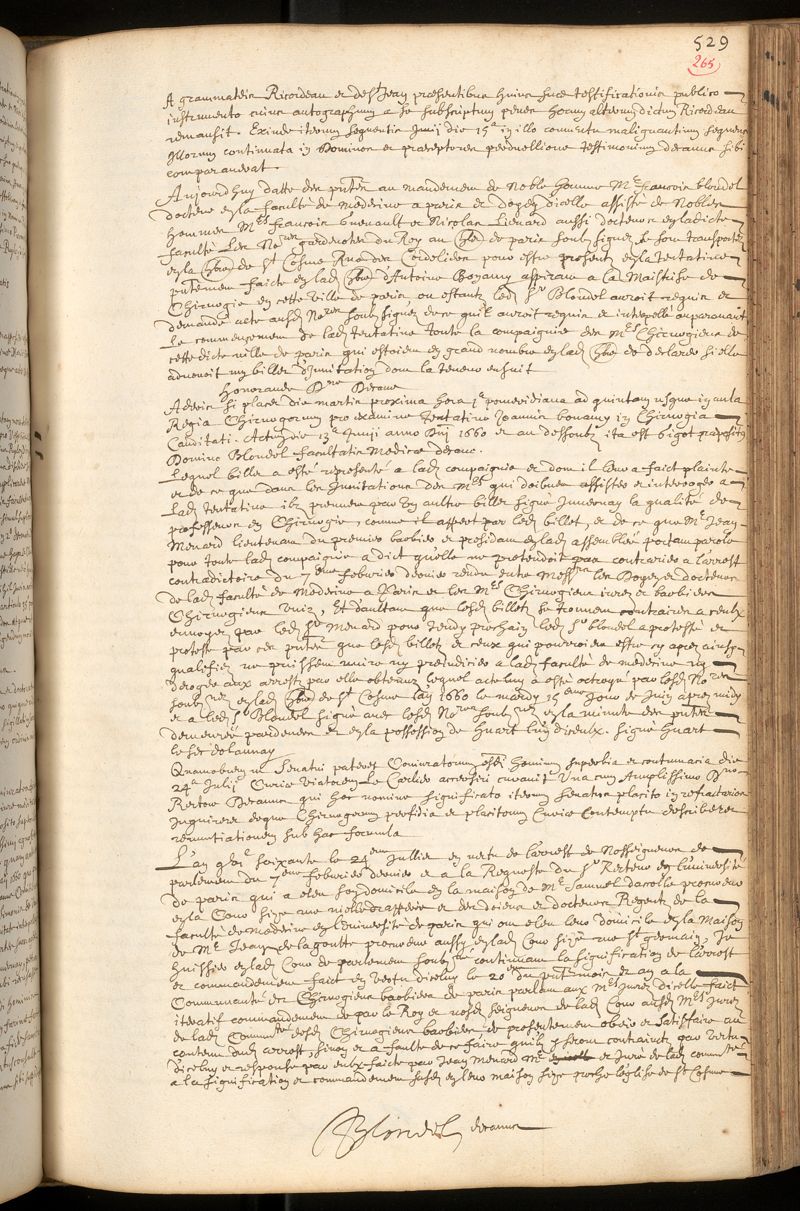 529
265
A grammateis Ricordeau et de St Jean praesentibus huius suae testificationis publico
instrumento cuius autographum a se subscriptum penes horum alterum dictum Ricordeau
remansit. Exinde iterum sequentis Junij die 15a in illo conventu malignantium sequens
illorum continuata in Dominos et praeceptores perduellione testimonium decanus sibi
comparaverat.
Aujourdhuy datte des pntes au mandement de Noble homme Me francois blondel
docteur en la faculté de medecine a paris et doyen dicelle assisté de Nobles
hommes Mes francois Guenault et Nicolas Lienard aussi docteurs en ladicte
faculté Les Nores gardenottes du Roy au de paris soubz signez se sont transportez
en la de St Cosme Rue des Cordeliers pour estre presents en la tentative
faicte en lad d'Antoine Bonamy aspirant a la Maistrise de
Chirurgie en cette ville de paris, ou estant led Sr Blondel auroit requis et
demandé acte ausd Nores soubz signez de ce quil auroit requis et interpellé auparavant
Le commencement de lad tentative toute la compaignie des Mes Chirurgiens de
cette dicte ville de paris qui estoient en grand nombre en lad de declarer si elle
advouoit un billet d'Invitation dont la teneur ensuit
Honorande Dne Decane
Aderis si placet die martis proxima hora 1a pomeridiana ad quintam usque in aula
Regia Chirurgorum pro examine tentativo Joannis bonamy in Chirurgia
Candidati. Actum die 13a Junij anno Dnj 1660 et au dessoubz ita est bigot praepositus
Domino Blondel facultatis Medicae decano.
Lequel billet a esté representé a lad compaignie et dont il leur a faict plainte
et de ce que dans les Invitations des Mes qui doibvent assister et interroger a
Lad tentative ilz prennent par un aultre billet signé la qualité de
professeurs en Chirurgie, comme il appert par led billet, et de ce que Me Jean
Menard lieutenant du premier barbier et president en lad assemblée portant parole
pour toute lad compaignie a dict quelle ne pretendoit pas contrarier a larrest
contradictoire du 7eme febvrier dernier rendu entre Messrs les Doyen et docteurs
de lad faculté de Medecine a Paris et les Mes Chirurgiens jurez et barbiers
Chirurgiens uniz, Et daultant que lesd billets se trouvent contraires a ceulx
envoyez par led Sr Menard pour Jeudy prochain led Sr blondel a protesté et
proteste par ces pntes que lesd billets et ceux qui pourroient estre cy apres ainsy
qualifiez ne puissent nuire ny prejudicier a lad faculté de medecine ny
deroger aux arrests par elle obtenuz lequel acte luy a esté octroyé par lesd Nores
soubznez en lad de St Cosme lan 1660 le mardy 15eme jour de Juin apres midy
et a led Sr Blondel signé avec lesd Nores soubznez en la minute des pntes
demeurée pardevers et en la possession de Huart lun diceulx. signé Huart
le sec delaunay
Quamobrem ut Senatui pateret Coniuratorum hominum superbia et contumacia die
24a Julij Curiae viatorem Le Carlier accersiri curavit Una cum Amplissimo Dno
Rectore Decanus qui hoc nomine significato iterum Senatus placito in refractarios
inquireret deque Chirurgorum perfidia et placitorum Curiae Contemptu describeret
renuntiationem sub hac formula
L'an gbic soixante le 24eme Juillet en vertu de larrest de Nosseigneurs de
parlement du 7eme febvrier dernier et a la Requeste du Sr Recteur en Luniversité
de paris qui a eleu son domicile en la maison de Me Samuel dacolle procureur
en la Cour size rue et des doiens et docteurs Regents de la
faculté de Medecine en l'Université de paris qui ont eleu leur domicile en la Maison
de Me Jean delagoutte procureur aussy en lad Cour size rue St germain, Je
huissier en lad Cour de parlement soubzné continuant la signification de larrest
et commandement faict en vertu diceluy le 20eme du pnt mois et an a la
Communauté des Chirurgiens barbiers de paris parlant aux Mes Jurez dicelle faict
iteratif commandement de par le Roy et nosd seigneurs de lad Cour ausd Mes Jurez
de lad Commté desd Chirurgiens barbiers de presentement obeir et satisfaire au
contenu dud arrest, sinon et a faulte de ce faire quilz y seront contraints par vertu
diceluy et response par eulx faicte par Jean Menard Me et Juré de lad commté
a la signification et commandement susd en leur maison size proche leglise de St Cosme
Blondel decanus